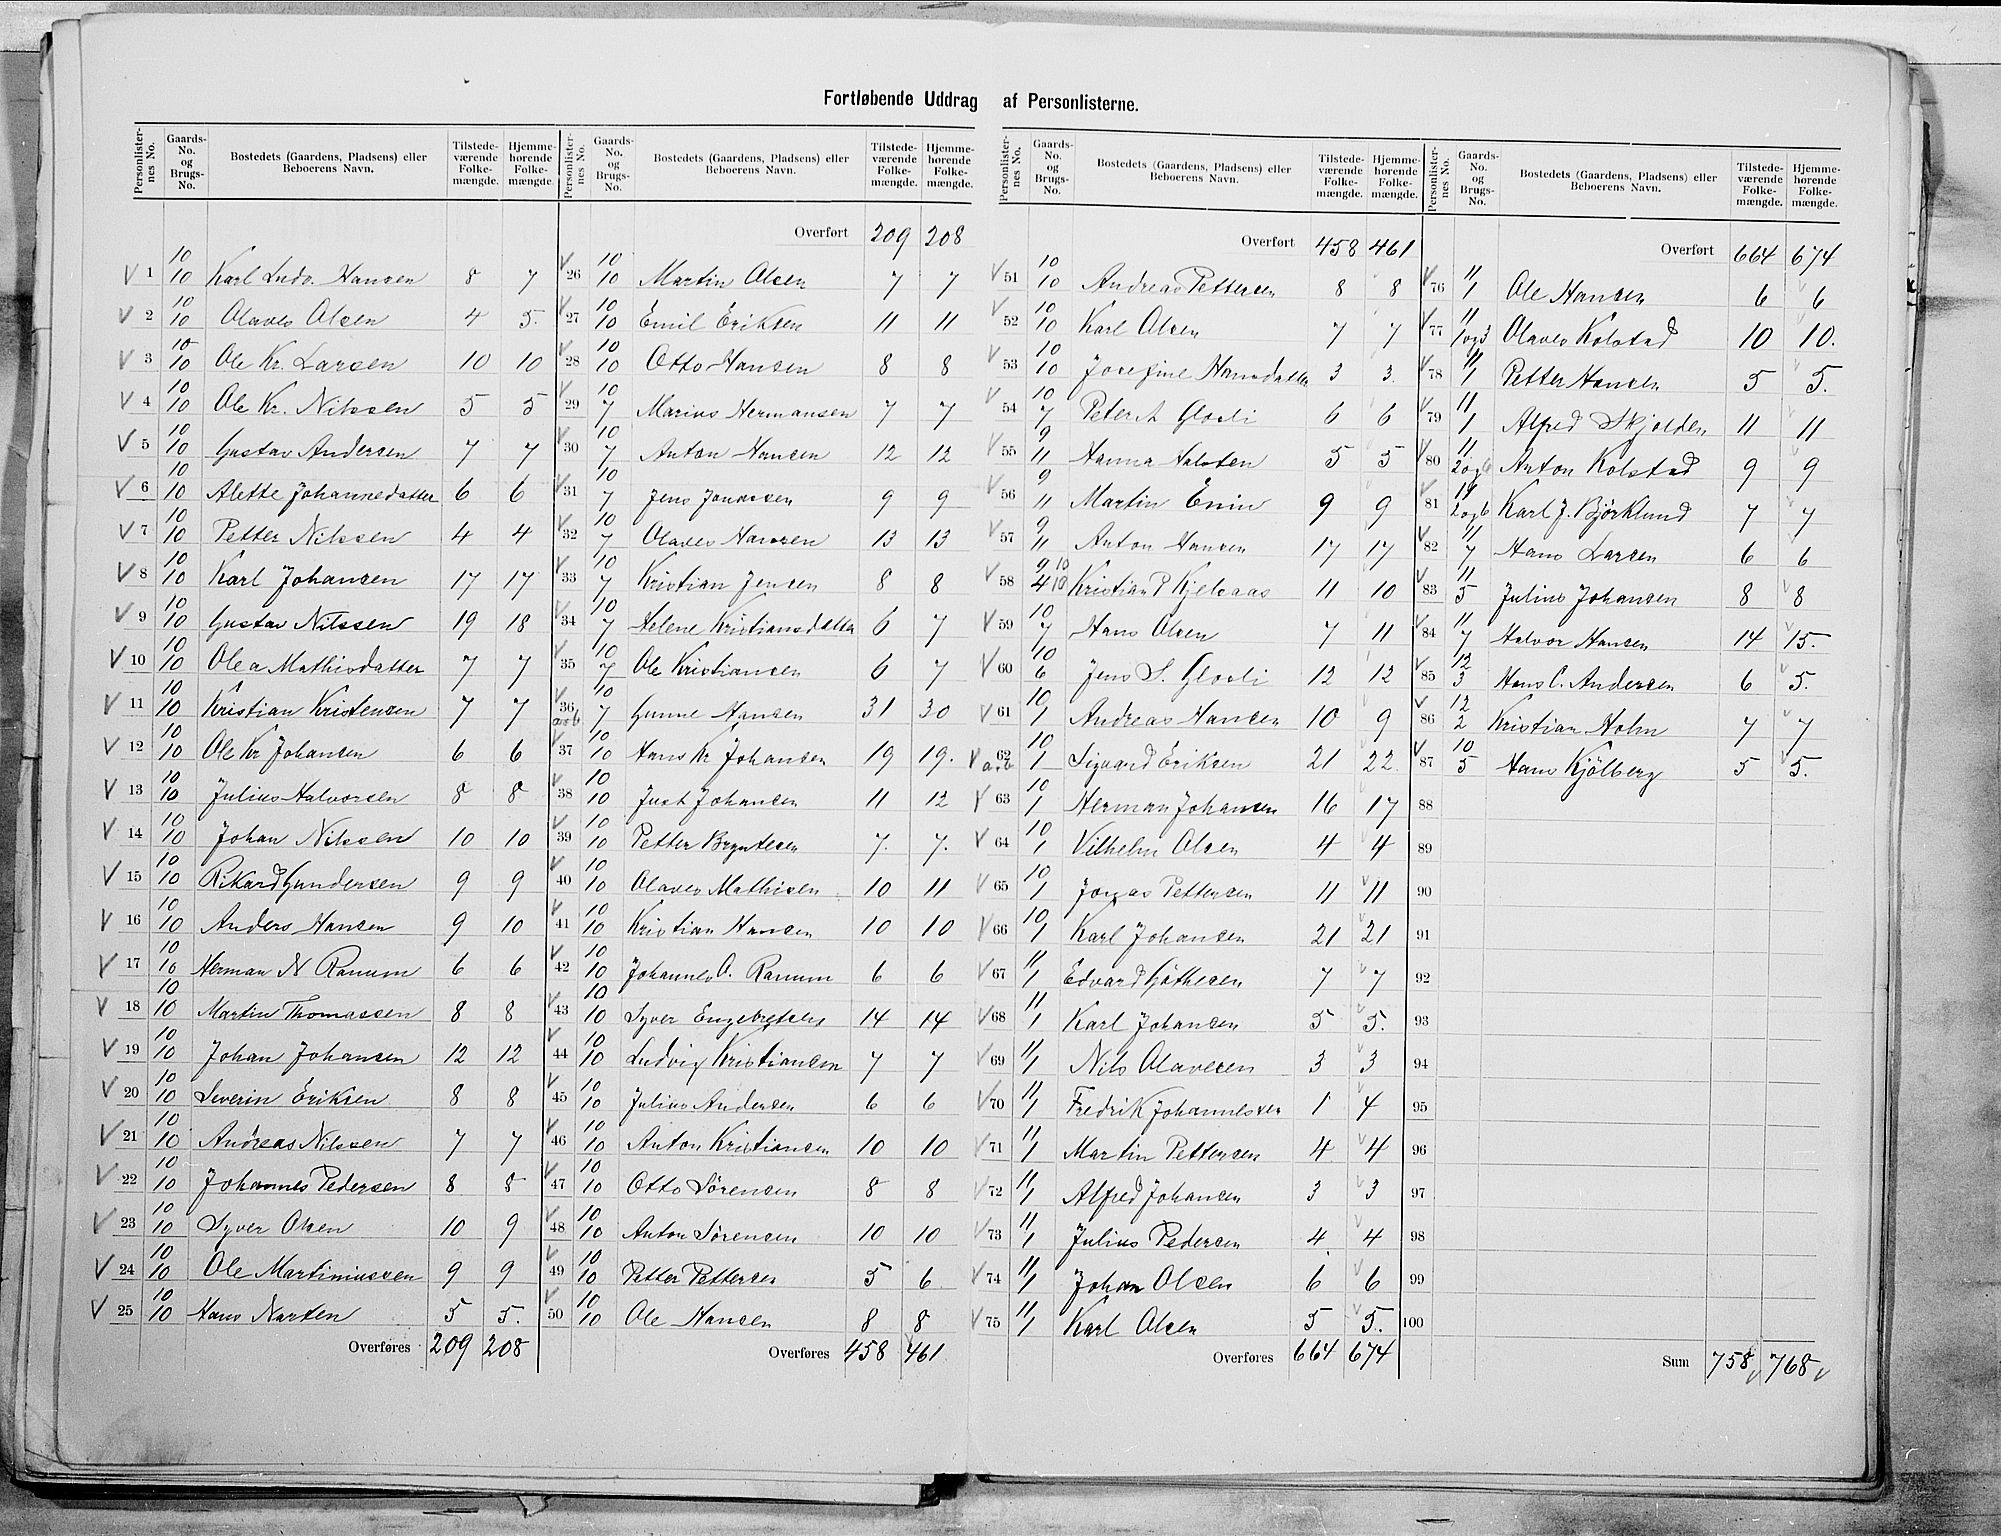 Fortløbende Uddrag af Personlisterne.
Personlisternes No. Gaards-No. og Brugs-No. Bostedets (Gaardens, Pladsens) eller Beboerens Navn. Tilstedeværende Folkemængde. Hjemmehørende Folkemængde.
V 1 10/10 Karl Ludv. Hansen 8 7
V 2 10/10 Olaves Olsen 4 5.
V 3 10/10 Ole Kr. Larsen 10 10
V 4 10/10 Ole Kr. Nilssen 5 5
V 5 10/10 Gustav Andersen 7 7
V 6 10/10 Alette Johannedatter 6 6
V 7 10/10 Petter Nilssen 4 4
V 8 10/10 Karl Johansen 17 17
V 9 10/10 Gustav Nilssen 19 18
V 10 10/10 Olea Mathisdatter 7 7
V 11 10/10 Kristian Kristensen 7 7
V 12 10/10 Ole Kr Johansen 6 6
V 13 10/10 Julius Halvorsen 8 8
V 14 10/10 Johan Nilssen 10 10
V 15 10/10 Rikard Gundersen 9 9
V 16 10/10 Anders Hansen 9 10
V 17 10/10 Herman N Ranum 6 6
V 18 10/10 Martin Thomassen 8 8
V 19 10/10 Johan Johansen 12 12
V 20 10/10 Severin Eriksen 8 8
V 21 10/10 Andreas Nilssen 7 7
V 22 10/10 Johannes Pedersen 8 8
V 23 10/10 Syver Olsen 10 9
V 24 10/10 Ole Martiniussen 9 9
V 25 10/10 Hans Narten 5 5.
Overføres 209 208
Personlisternes No. Gaards-No. og Brugs-No. Bostedets (Gaardens, Pladsens) eller Beboerens Navn. Tilstedeværende Folkemængde. Hjemmehørende Folkemængde.
Overført 209 208
V 26 10/10 Martin Olsen 7 7
V 27 10/10 Emil Eriksen 11 11
V 28 10/10 Otto Hansen 8 8
V 29 10/7 Marius Hermansen 7 7
V 30 10/7 Anton Hansen 12 12
V 31 10/7 Jens Jonassen 9 9
V 32 10/7 Olaves Hansen 13 13
V 33 10/7 Kristian Jensen 8 8
V 34 10/7 Helene Kristiansdatter 6 7
V 35 10/7 Ole Kristiansen 6 7
V 36 aob 10/7 Gunne Hansen 31 30
V 37 10/10 Hans Kr Johansen 19 19.
V 38 10/10 Just Johansen 11 12
V 39 10/10 Petter Bryntesen 7. 7.
V 40 10/10 Olaves Mathisen 10 11
V 41 10/10 Kristian Hansen 10 10
V 42 10/10 Johannes O. Ranum 6 6
V 43 10/10 Syver Engebretsen 14 14
V 44 10/10 Ludvig Kristiansen 7 7
V 45 10/10 Julius Andersen 6 6
V 46 10/10 Anton Kristiansen 10 10
V 47 10/10 Otto Sørensen 8 8
V 48 10/10 Anton Sørensen 10 10
V 49 10/10 Petter Pettersen 5 6
V 50 10/10 Ole Hansen 8 8
Overføres 458 461.
Personlisternes No. Gaards-No. og Brugs-No. Bostedets (Gaardens, Pladsens) eller Beboerens Navn. Tilstedeværende Folkemængde. Hjemmehørende Folkemængde.
Overført 458 461
V 51 10/10 Andreas Pettersen 8 8
V 52 10/10 Karl Olsen 7 7
V 53 10/10 Josefine Hansdatter 3 3.
V 54 10/7 Peter A Glosli 6 6
V 55 9/11 Hanna Halsten 5 5
V 56 9/11 Martin Enin 9 9
V 57 9/11 Anton Hansen 17 17
V 58 9/4 10/10 Kristian P Kjelsaas 11 10
V 59 10/7 Hans Olsen 7 11
V 60 10/6 Jens S. Glosli 12 12
V 61 10/1 Andreas Hansen 10 9
V 62 a.b 10/1 Sigvard Eriksen 21 22
V 63 10/1 Herman Johansen 16 17
V 64 10/1 Vilhelm Olsen 4 4
V 65 10/1 Jonas Pettersen 11 11
V 66 10/1 Karl Johansen 21 21
V 67 11/1 Edvard Göthesen 7 7
V 68 11/1 Karl Johansen 5 5.
V 69 11/1 Nils Olavesen 3 3
V 70 11/1 Fredrik Johannessen 1 4
V 71 11/1 Martin Pettersen 4 4
V 72 11/1 Alfred Johansen 3 3
V 73 11/1 Julius Pedersen 4 4
V 74 11/1 Johan Olsen 6 6
V 75 11/1 Karl Olsen 5 5.
Overføres 664 674
Personlisternes No. Gaards-No. og Brugs-No. Bostedets (Gaardens, Pladsens) eller Beboerens Navn. Tilstedeværende Folkemængde. Hjemmehørende Folkemængde.
Overført 664 674
V 76 11/1 Ole Hansen 6 6
V 77 11/1og3 Olaves Kolstad 10 10.
V 78 11/1 Petter Hansen 5 5.
V 79 11/1 Alfred Skjolden 11 11
V 80 11/2og6 Anton Kolstad 9 9
V 81 11/2og6 Karl J. Björklund 7 7
V 82 11/7 Hans Larsen 6 6
V 83 11/5 Julius Johansen 8 8
V 84 11/7 Halvor Hansen 14 15.
V 85 12/3 Hans C. Andersen 6 5.
V 86 12/2 Kristian Holm 7 7
V 87 10/5 Hans Kjölberg 5 5.
88
89
90
91
92
93
94
95
96
97
98
99
100
Sum 758 768